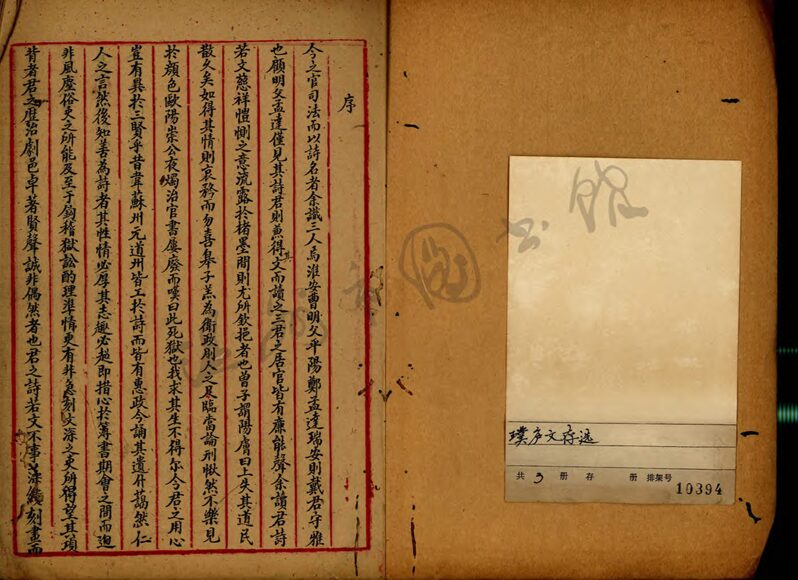 序
今之官司法而以詩名者余識三人焉淮安曹明父平陽鄭孟達瑞安則戴君守雅
也顧明父孟達僅見其詩君則兼得其文而讀之三君之居官皆有廉能聲余讀君詩
若文慈祥愷惻之意流露於楮墨間則尤所欽挹者也曾子謂陽膚曰上失其道民
散久矣如得其情則哀矜而勿喜皋子羔為衛政刖人之足臨當論刑愀然不樂見
於顏色歐陽崇公夜燭治官書屢廢而嘆曰此死獄也我求其生不得爾今君之用心
豈有異於三賢乎昔韋蘇州元道州皆工於詩而皆有惠政今誦其遺什藹然仁
人之言然後知善為詩者其性情必厚其志趣必超即措心於簿書期會之間而迥
非風塵俗吏之所能及至于鉤稽獄訟酌理準情更有非急刻文深之吏所得望其項
昔者君之歷治劇邑卓著賢聲誠非偶然者也君之詩若文不事刻畫而
璞庐文存选
共 3 册 存 册 排架号
10394